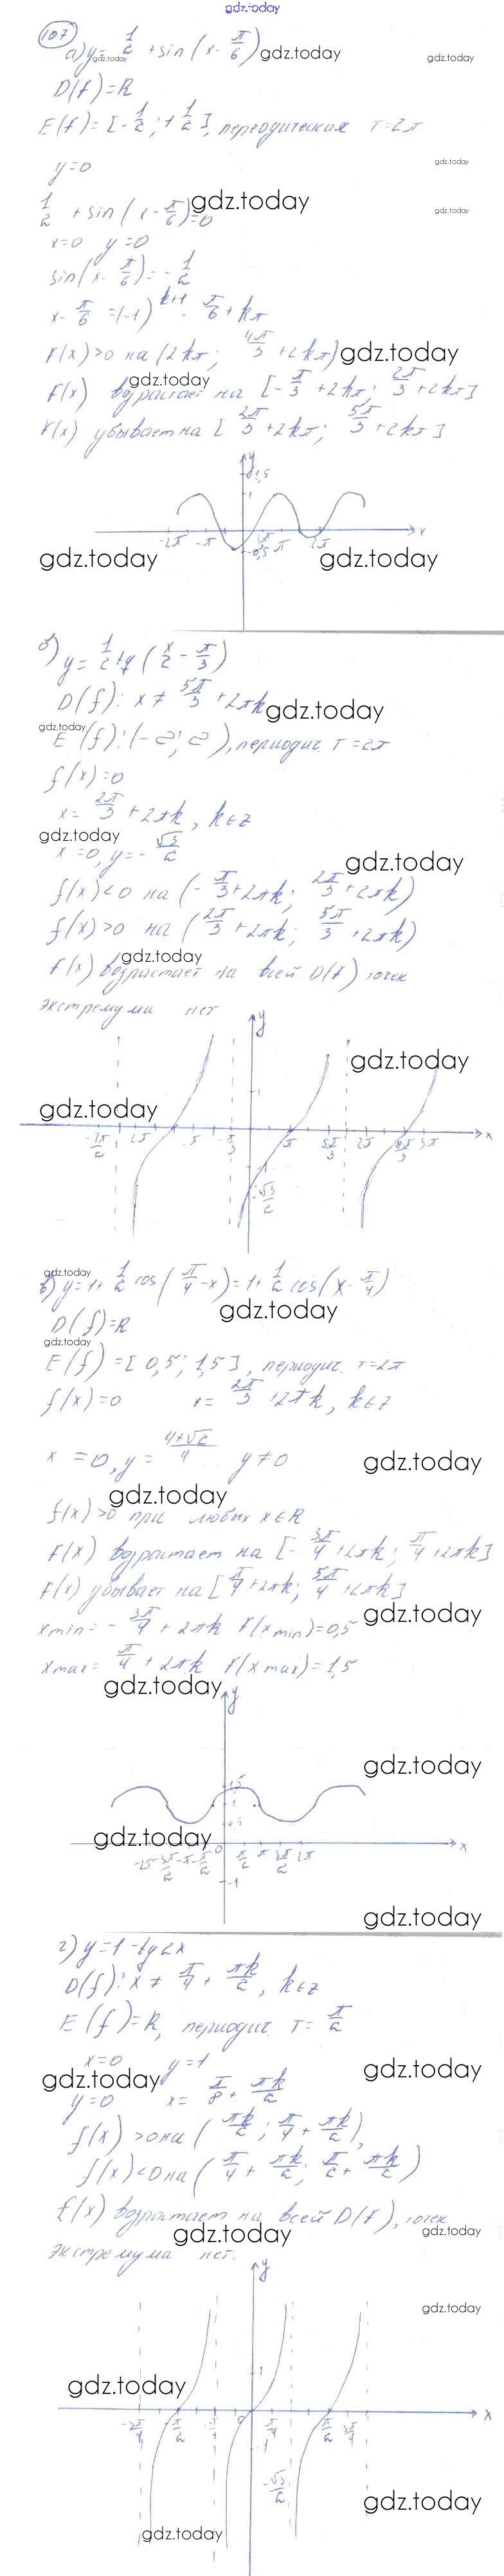 gdz.today
107
а) y = 1/2 + sin(x - π/6) gdz.today
gdz.today gdz.today
D(f) = R
E(f) = [-1/2; +1/2], переодическая T = 2π
y = 0 gdz.today
gdz.today
1/2 + sin(x - π/6) = 0 gdz.today
x = 0 y = 0
sin(x - π/6) = -1/2
x - π/6 = (-1)^k+1 · π/6 + kπ
f(x) > 0 на (2kπ; 4π/3 + 2kπ) gdz.today
gdz.today
f(x) возрастает на [-π/3 + 2kπ; 2π/3 + 2kπ]
f(x) убывает на [2π/3 + 2kπ; 5π/3 + 2kπ]
y
1,5
1
-2π -π π 2π x
-0,5
gdz.today gdz.today
б) y = 1/2 tg(x/2 - π/3)
D(f): x ≠ 5π/3 + 2πk gdz.today
gdz.today
E(f): (-∞; ∞), периодич. T = 2π
f(x) = 0
x = 2π/3 + 2πk, k ∈ z
gdz.today
x = 0, y = -√3/2
gdz.today
f(x) < 0 на (-π/3 + 2πk; 2π/3 + 2πk)
f(x) > 0 на (2π/3 + 2πk; 5π/3 + 2πk)
gdz.today
f(x) возрастает на всей D(f), точек
экстремума нет
y
gdz.today
1
gdz.today
-π -π/3 π 5π/3 2π 8π/3 3π x
-1
-√3/2
gdz.today
в) y = 1 + 1/2 cos(π/4 - x) = 1 + 1/2 cos(x - π/4)
gdz.today
D(f) = R
gdz.today
E(f) = [0,5; 1,5], периодич. T = 2π
f(x) = 0 x = 2π/3 + 2πk, k ∈ z
x = 0, y = 4+√2/4 y ≠ 0 gdz.today
gdz.today
f(x) > 0 при любых x ∈ R
f(x) возрастает на [-3π/4 + 2πk; π/4 + 2πk]
f(x) убывает на [π/4 + 2πk; 5π/4 + 2πk]
gdz.today
xmin = -3π/4 + 2πk f(xmin) = 0,5
xmax = π/4 + 2πk f(xmax) = 1,5
gdz.today
y
gdz.today
1,5
1
0,5
gdz.today
0 x
-2π -3π/2 -π -π/2 π/2 π 3π/2 2π
-1
gdz.today
г) y = 1 - tg2x
D(f): x ≠ π/4 + πk/2, k ∈ z
E(f) = R, периодич. T = π/2
x = 0 y = 1
gdz.today gdz.today
y = 0 x = π/8 + πk/2
f(x) > 0 на (πk/2; π/4 + πk/2),
f(x) < 0 на (π/4 + πk/2; π/2 + πk/2)
f(x) возрастает на всей D(f), точек
gdz.today gdz.today
экстремума нет.
y
gdz.today
gdz.today
1
0 x
-3π/4 -π/2 -π/4 π/4 π/2 3π/4
-1
-√3/2
gdz.today
gdz.today